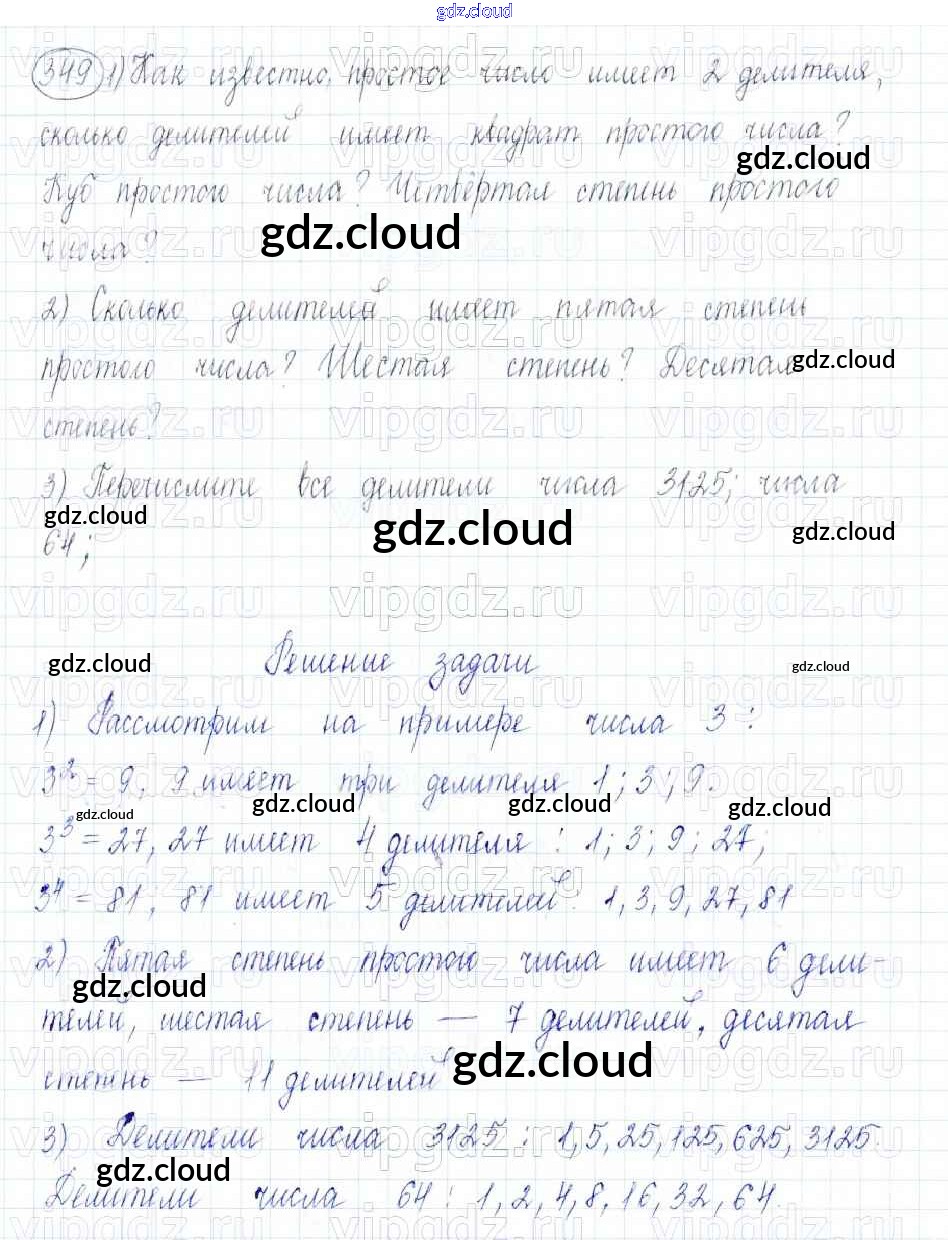 gdz.cloud
349 1) Как известно, простое число имеет 2 делителя,
сколько делителей имеет квадрат простого числа?
gdz.cloud
Куб простого числа? Четвёртая степень простого
gdz.cloud
числа?
2) Сколько делителей имеет пятая степень
простого числа? Шестая степень? Десятая
gdz.cloud
степень?
3) Перечислите все делители числа 3125; числа
gdz.cloud gdz.cloud gdz.cloud
64;
Решение задачи
gdz.cloud gdz.cloud
1) Рассмотрим на примере числа 3:
3² = 9, 9 имеет три делителя 1; 3; 9.
gdz.cloud gdz.cloud gdz.cloud gdz.cloud
3³ = 27, 27 имеет 4 делителя: 1; 3; 9; 27;
3⁴ = 81; 81 имеет 5 делителей: 1, 3, 9, 27, 81
2) Пятая степень простого числа имеет 6 дели-
gdz.cloud
телей, шестая степень — 7 делителей, десятая
gdz.cloud
степень — 11 делителей
3) Делители числа 3125: 1, 5, 25, 125, 625, 3125.
gdz.cloud
Делители числа 64: 1, 2, 4, 8, 16, 32, 64.
vipgdz.ru vipgdz.ru vipgdz.ru